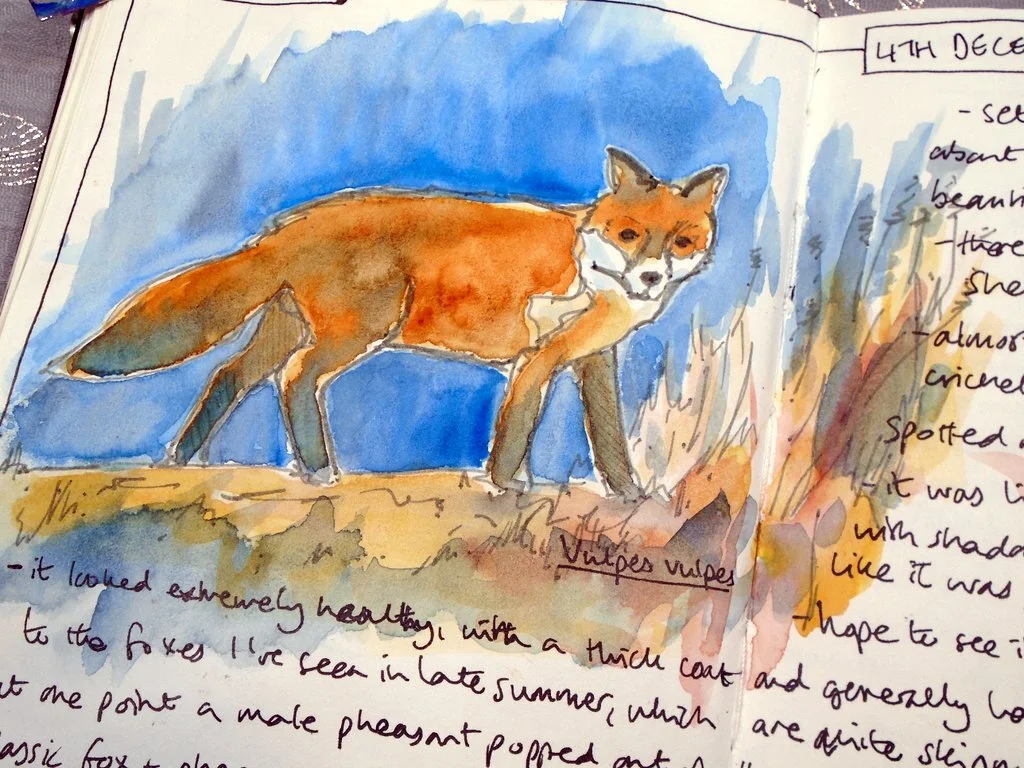 4TH DECE
- set
about
beauti
- there
she
- almos
cricke
Spotted
- it was li
with shado
like it was
- hope to see i
Vulpes vulpes
- it looked extremely healthy, with a thick coat and generally
to the foxes I've seen in late summer, which are quite skinn
at one point a male pheasant popped out
lassic fox +